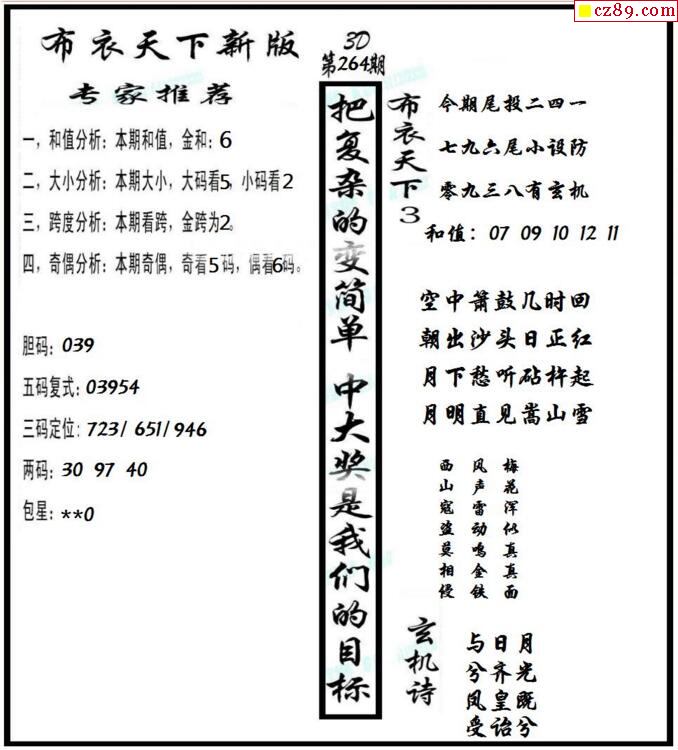 cz89.com
布衣天下新版
专家推荐
一，和值分析：本期和值，金和：6
二，大小分析：本期大小，大码看5，小码看2
三，跨度分析：本期看跨，金跨为2。
四，奇偶分析：本期奇偶，奇看5码，偶看6码。
胆码：039
五码复式：03954
三码定位：723/ 651/946
两码：30 97 40
包星：**0
3D
第264期
把复杂的变简单 中大奖是我们的目标
布衣天下3
今期尾投二四一
七九六尾小设防
零九三八有玄机
和值：07 09 10 12 11
空中萧鼓几时回
朝出沙头日正红
月下愁听砧杵起
月明直见嵩山雪
西风梅
山声花
寇雷浑
盗动似
莫鸣真
相金真
侵铁面
玄机诗
与日月
兮齐光
凤皇既
受诒兮